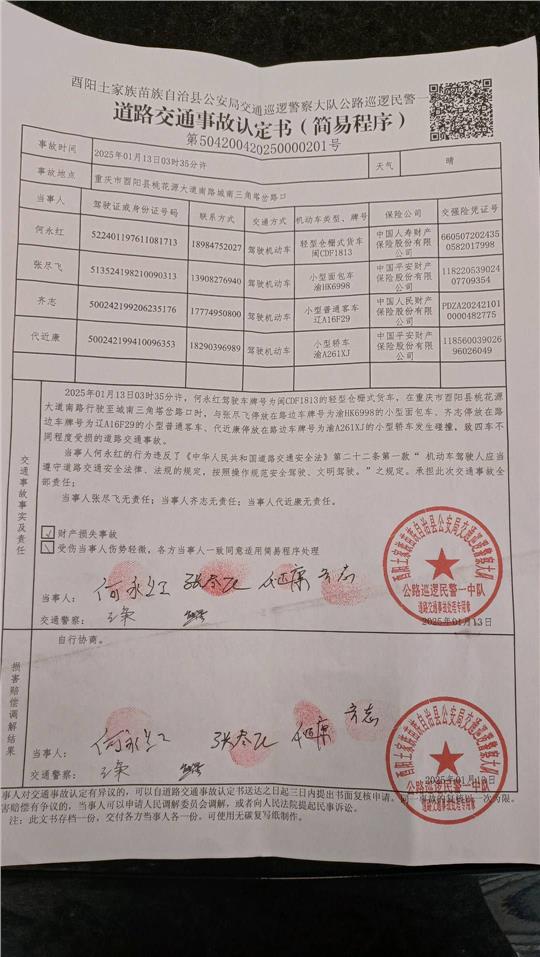 酉阳土家族苗族自治县公安局交通巡逻警察大队公路巡逻民警一
道路交通事故认定书（简易程序）
第504200420250000201号
事故时间 2025年01月13日03时35分许 天气 晴
事故地点 重庆市酉阳县桃花源大道南路城南三角塔岔路口
当事人 驾驶证或身份证号码 联系方式 交通方式 机动车类型、牌号 保险公司 交强险凭证号
何永红 522401197611081713 18984752027 驾驶机动车 轻型仓栅式货车 闽CDF1813 中国人寿财产保险股份有限公司 6605072024350582017998
张尽飞 513524198210090313 13908276940 驾驶机动车 小型面包车 渝HK6998 中国平安财产保险股份有限公司 11822053902407709354
齐志 500242199206235176 17774950800 驾驶机动车 小型普通客车 辽A16F29 中国人民财产保险股份有限公司 PDZA202421010000482775
代近康 500242199410096353 18290396989 驾驶机动车 小型轿车 渝A261XJ 中国平安财产保险股份有限公司 11856003902696026049
交通事故事实及责任
2025年01月13日03时35分许，何永红驾驶车牌号为闽CDF1813的轻型仓栅式货车，在重庆市酉阳县桃花源
大道南路行驶至城南三角塔岔路口时，与张尽飞停放在路边车牌号为渝HK6998的小型面包车、齐志停放在路
边车牌号为辽A16F29的小型普通客车、代近康停放在路边车牌号为渝A261XJ的小型轿车发生碰撞，致四车不
同程度受损的道路交通事故。
当事人何永红的行为违反了《中华人民共和国道路交通安全法》第二十二条第一款“ 机动车驾驶人应当
遵守道路交通安全法律、法规的规定，按照操作规范安全驾驶、文明驾驶。”之规定。承担此次交通事故
全部责任；
当事人张尽飞无责任；当事人齐志无责任；当事人代近康无责任。
财产损失事故
受伤当事人伤势轻微，各方当事人一致同意适用简易程序处理
当事人： 何永红 张尽飞 代近康 齐志
交通警察：
酉阳土家族苗族自治县公安局交通巡逻警察大队
公路巡逻民警一中队
道路交通事故处理专用章
2025年01月13日
损害赔偿调解结果
自行协商。
当事人： 何永红 张尽飞 代近康 齐志
交通警察：
酉阳土家族苗族自治县公安局交通巡逻警察大队
公路巡逻民警一中队
道路交通事故处理专用章
2025年01月13日
事人对交通事故认定有异议的，可以自道路交通事故认定书送达之日起三日内提出书面复核申请。同一事故的复核以一次为限。
害赔偿有争议的，当事人可以申请人民调解委员会调解，或者向人民法院提起民事诉讼。
注：此文书存档一份，交付各方当事人各一份。可使用无碳复写纸制作。